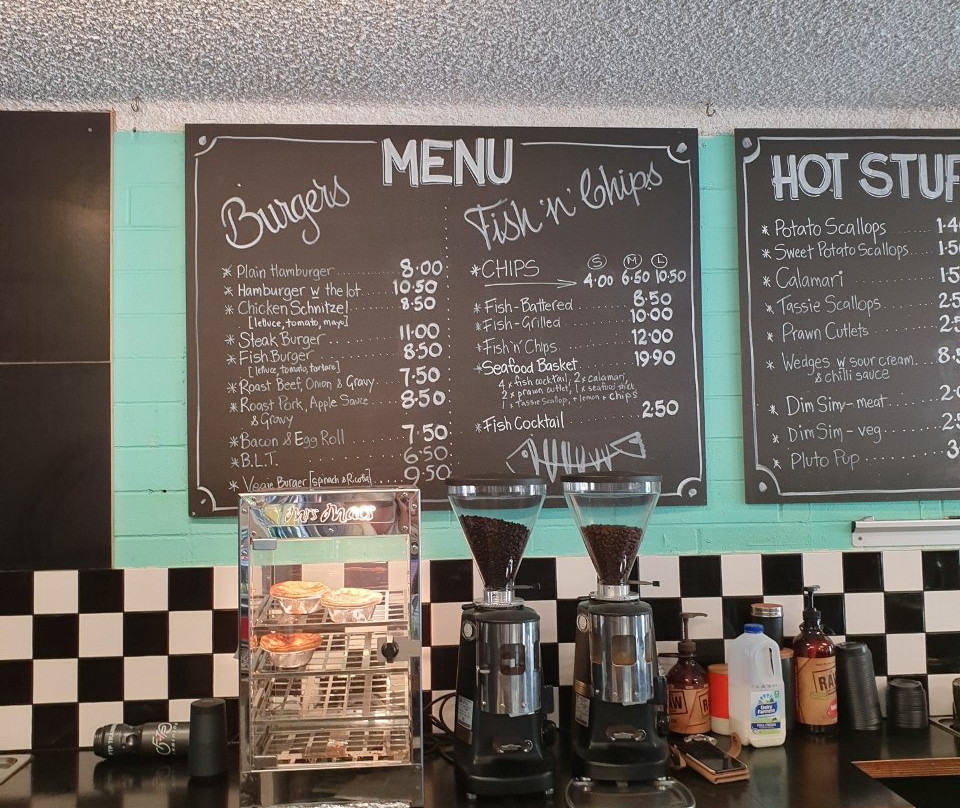 MENU
Burgers
* Plain Hamburger 8.00
* Hamburger w the lot 10.50
* Chicken Schnitzel 8.50
[lettuce, tomato, mayo]
* Steak Burger 11.00
* Fish Burger 8.50
[lettuce, tomato, tartare]
* Roast Beef, Onion & Gravy 7.50
* Roast Pork, Apple Sauce 8.50
& Gravy
* Bacon & Egg Roll 7.50
* B.L.T. 6.50
* Vegie Burger [spinach & Ricotta] 9.50
Fish 'n' Chips
S M L
* CHIPS 4.00 6.50 10.50
* Fish-Battered 8.50
* Fish-Grilled 10.00
* Fish 'n' Chips 12.00
* Seafood Basket 19.90
4 x fish cocktail, 2 x calamari
2 x prawn cutlet, 1 x seafood stick
1 x Tassie Scallop, + lemon + chips
* Fish Cocktail 2.50
HOT STUF
* Potato Scallops 1.4
* Sweet Potato Scallops 1.5
* Calamari 1.5
* Tassie Scallops 2.5
* Prawn Cutlets 2.5
* Wedges w sour cream 8.5
& chilli sauce
* Dim Sim - meat 2.
* Dim Sim - veg 2.
* Pluto Pup 3.
Mrs Mac's
RAW
Dairy Farmers
RAW